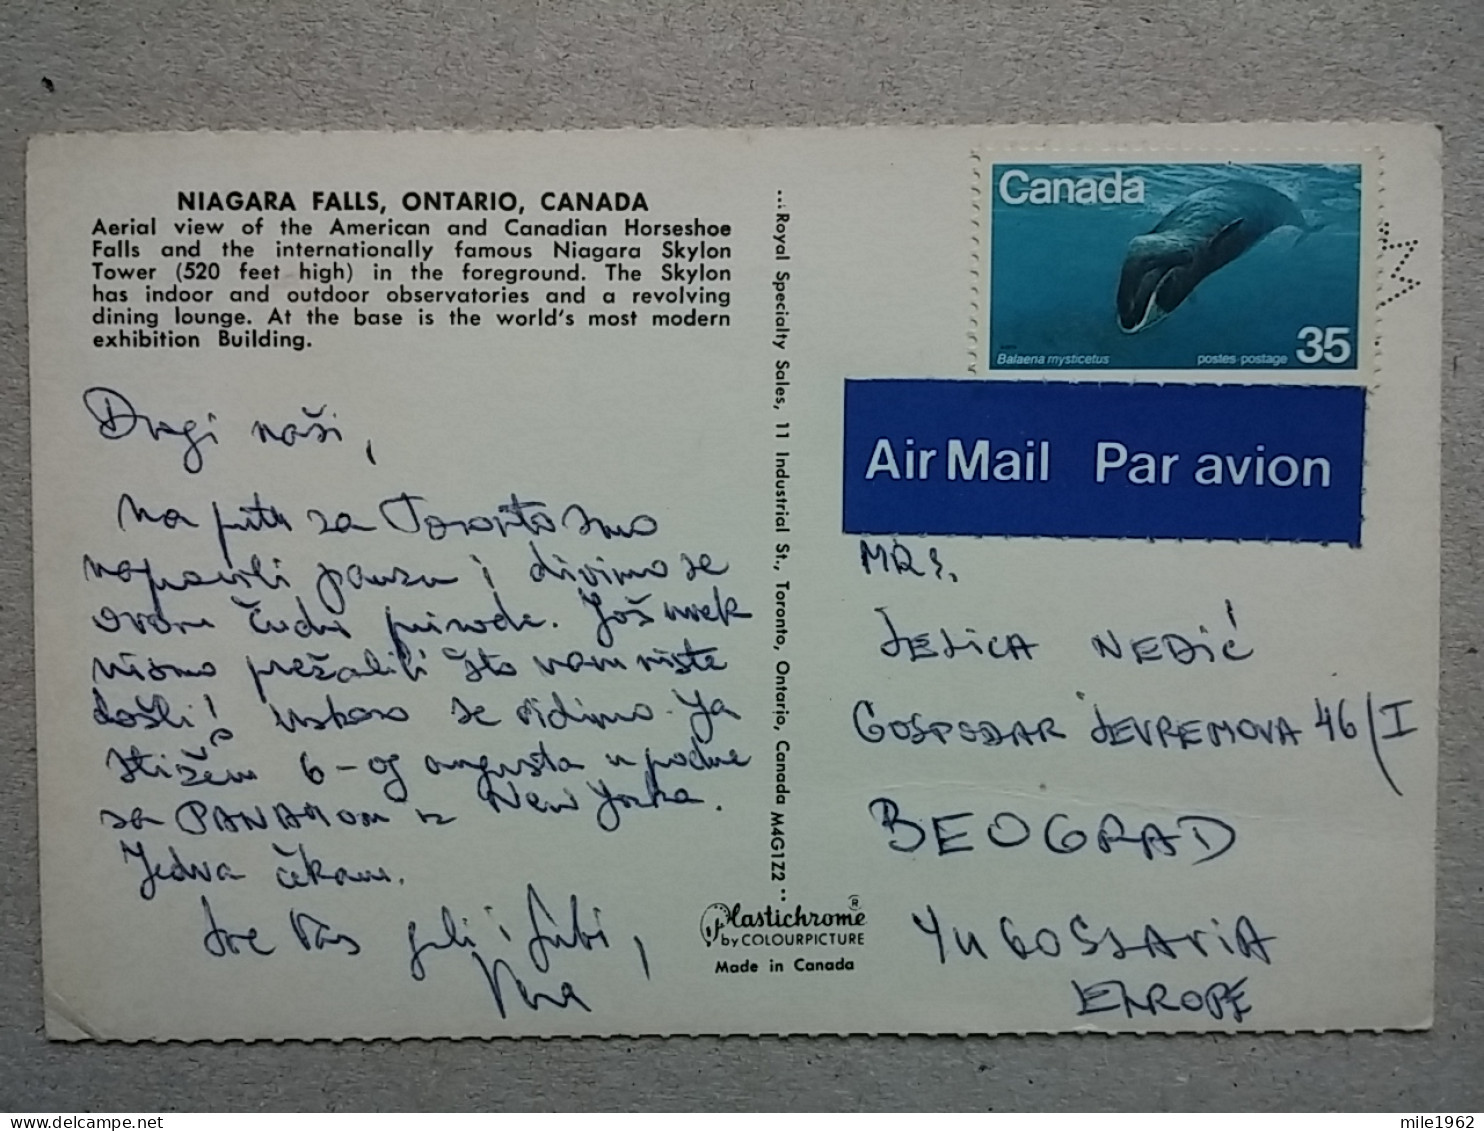 NIAGARA FALLS, ONTARIO, CANADA
Aerial view of the American and Canadian Horseshoe
Falls and the internationally famous Niagara Skylon
Tower (520 feet high) in the foreground. The Skylon
has indoor and outdoor observatories and a revolving
dining lounge. At the base is the world's most modern
exhibition Building.
Dragi naši,
Na putu za Toronto smo
napravili pauzu i divimo se
ovom čudu prirode. Još uvek
nismo prežalili što vam niste
došli! Uskoro se vidimo. Ja
stižem 6-og avgusta u podne
sa PANAMOM iz New Yorka.
Jedva čekam.
Sve Vas grli i ljubi,
...Royal Specialty Sales, 11 Industrial St., Toronto, Ontario, Canada M4G1Z2...
Plastichrome®
by COLOURPICTURE
Made in Canada
Canada
Balaena mysticetus
postes-postage 35
Air Mail Par avion
MRS.
JELICA NEDIĆ
GOSPODAR JEVREMOVA 46/I
BEOGRAD
YUGOSLAVIA
EUROPE
mile1962